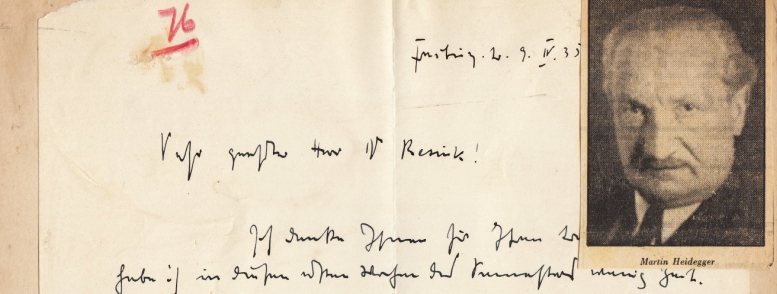 76
Freiburg. d. 9. IV. 35
Sehr geehrter Herr
Ich danke Ihnen für Ihren
habe ich in diesen ersten Wochen des Semesters wenig Zeit.
Martin Heidegger